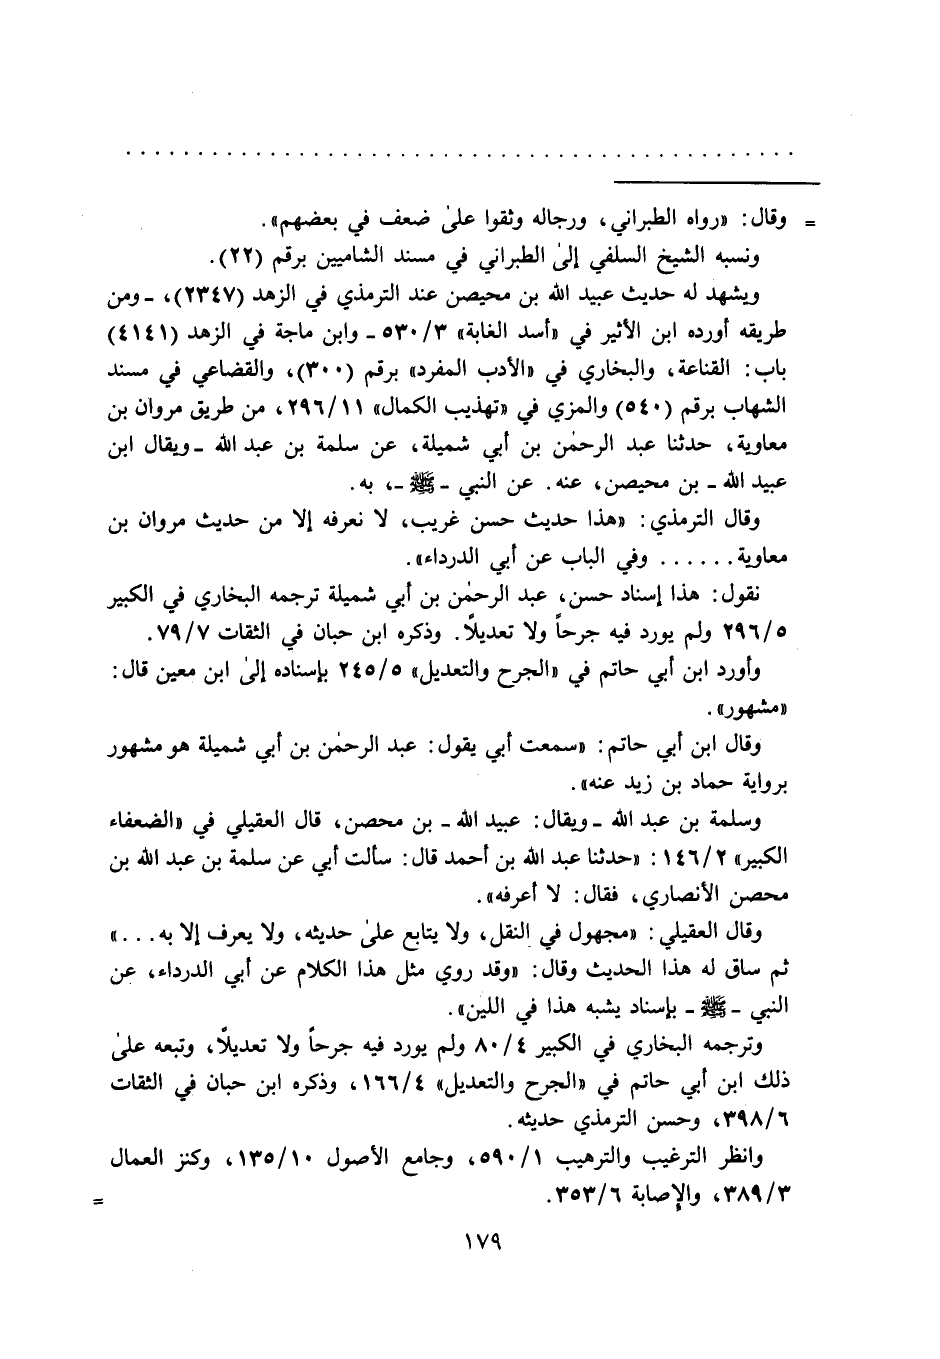 . . . . . . . . . . . . . . . . . . . . . . . . . . . . . . . . . . . . . . . . . . . . . . . .
= وقال: «رواه الطبراني، ورجاله وثقوا علىٰ ضعف في بعضهم».
ونسبه الشيخ السلفي إلىٰ الطبراني في مسند الشاميين برقم (٢٢).
ويشهد له حديث عبيد الله بن محيصن عند الترمذي في الزهد (٢٣٤٧)، ـ ومن
طريقه أورده ابن الأثير في «أسد الغابة» ٥٣٠/٣ ـ وابن ماجة في الزهد (٤١٤١)
باب: القناعة، والبخاري في «الأدب المفرد» برقم (٣٠٠)، والقضاعي في مسند
الشهاب برقم (٥٤٠) والمزي في «تهذيب الكمال» ٢٩٦/١١، من طريق مروان بن
معاوية، حدثنا عبد الرحمٰن بن أبي شميلة، عن سلمة بن عبد الله ـ ويقال ابن
عبيد الله ـ بن محيصن، عنه. عن النبي ـ ﷺ ـ، به.
وقال الترمذي: «هذا حديث حسن غريب، لا نعرفه إلا من حديث مروان بن
معاوية. . . . . . وفي الباب عن أبي الدرداء».
نقول: هذا إسناد حسن، عبد الرحمٰن بن أبي شميلة ترجمه البخاري في الكبير
٢٩٦/٥ ولم يورد فيه جرحاً ولا تعديلاً. وذكره ابن حبان في الثقات ٧٩/٧.
وأورد ابن أبي حاتم في «الجرح والتعديل» ٢٤٥/٥ بإسناده إلىٰ ابن معين قال:
«مشهور».
وقال ابن أبي حاتم: «سمعت أبي يقول: عبد الرحمٰن بن أبي شميلة هو مشهور
برواية حماد بن زيد عنه».
وسلمة بن عبد الله ـ ويقال: عبيد الله ـ بن محصن، قال العقيلي في «الضعفاء
الكبير» ١٤٦/٢: «حدثنا عبد الله بن أحمد قال: سألت أبي عن سلمة بن عبد الله بن
محصن الأنصاري، فقال: لا أعرفه».
وقال العقيلي: «مجهول في النقل، ولا يتابع علىٰ حديثه، ولا يعرف إلا به. . .»
ثم ساق له هذا الحديث وقال: «وقد روي مثل هذا الكلام عن أبي الدرداء، عن
النبي ـ ﷺ ـ بإسناد يشبه هذا في اللين».
وترجمه البخاري في الكبير ٨٠/٤ ولم يورد فيه جرحاً ولا تعديلاً، وتبعه علىٰ
ذلك ابن أبي حاتم في «الجرح والتعديل» ١٦٦/٤، وذكره ابن حبان في الثقات
٣٩٨/٦، وحسن الترمذي حديثه.
وانظر الترغيب والترهيب ٥٩٠/١، وجامع الأصول ١٣٥/١٠، وكنز العمال
٣٨٩/٣، والإصابة ٣٥٣/٦. =
١٧٩